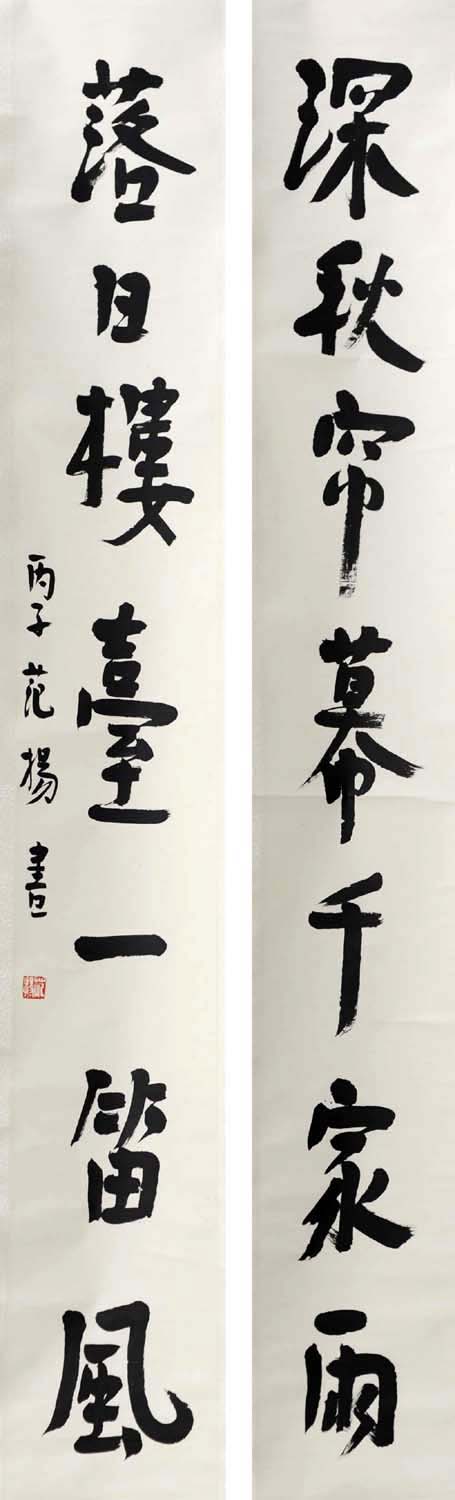 深秋帘幕千家雨
落日樓臺一笛風
丙子范揚書